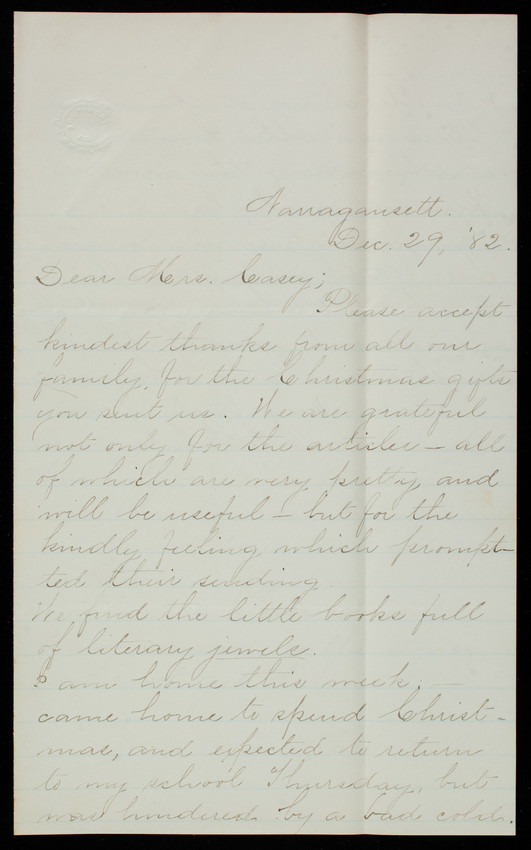 Narragansett.
Dec. 29, '82.
Dear Mrs. Casey;
Please accept
kindest thanks from all our
family, for the Christmas gifts
you sent us. We are grateful
not only for the articles — all
of which are very pretty and
will be useful — but for the
kindly feeling which promp-
ted their sending
We find the little books full
of literary jewels.
I am home this week; —
came home to spend Christ-
mas, and expected to return
to my school Thursday, but
was hindered by a bad cold.